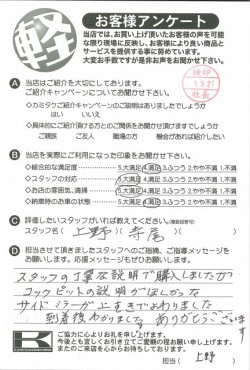 軽
お客様アンケート
当店では、お買い上げ頂いたお客様の声を可能
な限り現場に反映し、お客様により良い商品と
サービスを提供する事に努めています。
大変お手数ですが是非お声をお聞かせ下さい。
検印
1.9.21
社長
A 当店はご紹介を大切にしております。
ご紹介キャンペーンについてお聞かせ下さい。
◇カミタケご紹介キャンペーンのご説明はありましたでしょうか
はい いいえ
◇具体的にご紹介頂ける方とのご関係をお聞かせ頂けますでしょうか
ご親族 ご友人 職場の方 機会があれば紹介したい
B 当店を実際にご利用になった印象をお聞かせ下さい。
◇総合的な満足度 5.大満足 4.満足 3.ふつう 2.やや不満 1.不満
◇スタッフの対応 5.大満足 4.満足 3.ふつう 2.やや不満 1.不満
◇お店の雰囲気、清掃 5.大満足 4.満足 3.ふつう 2.やや不満 1.不満
◇納車時のお車の状態 5.大満足 4.満足 3.ふつう 2.やや不満 1.不満
C 評価したいスタッフがいれば教えてください。(複数回答可)
スタッフ名( 上野)( 寺尾 )
D 担当させて頂きましたスタッフへのご指摘、ご指導メッセージを
お願いします。応援メッセージもぜひお願いします。
スタッフの丁寧な説明で購入しましたが
コックピットの説明がほしかった
サイドミラーが上すぎてよわりました
到着後わかりました ありがとうございます
ご協力に心よりお礼を申し上げます。
今後とも宜しくお引き立てご愛顧の程お願い申し上げます。
またのご来店を心からお待ちしております。
担当( 上野 )